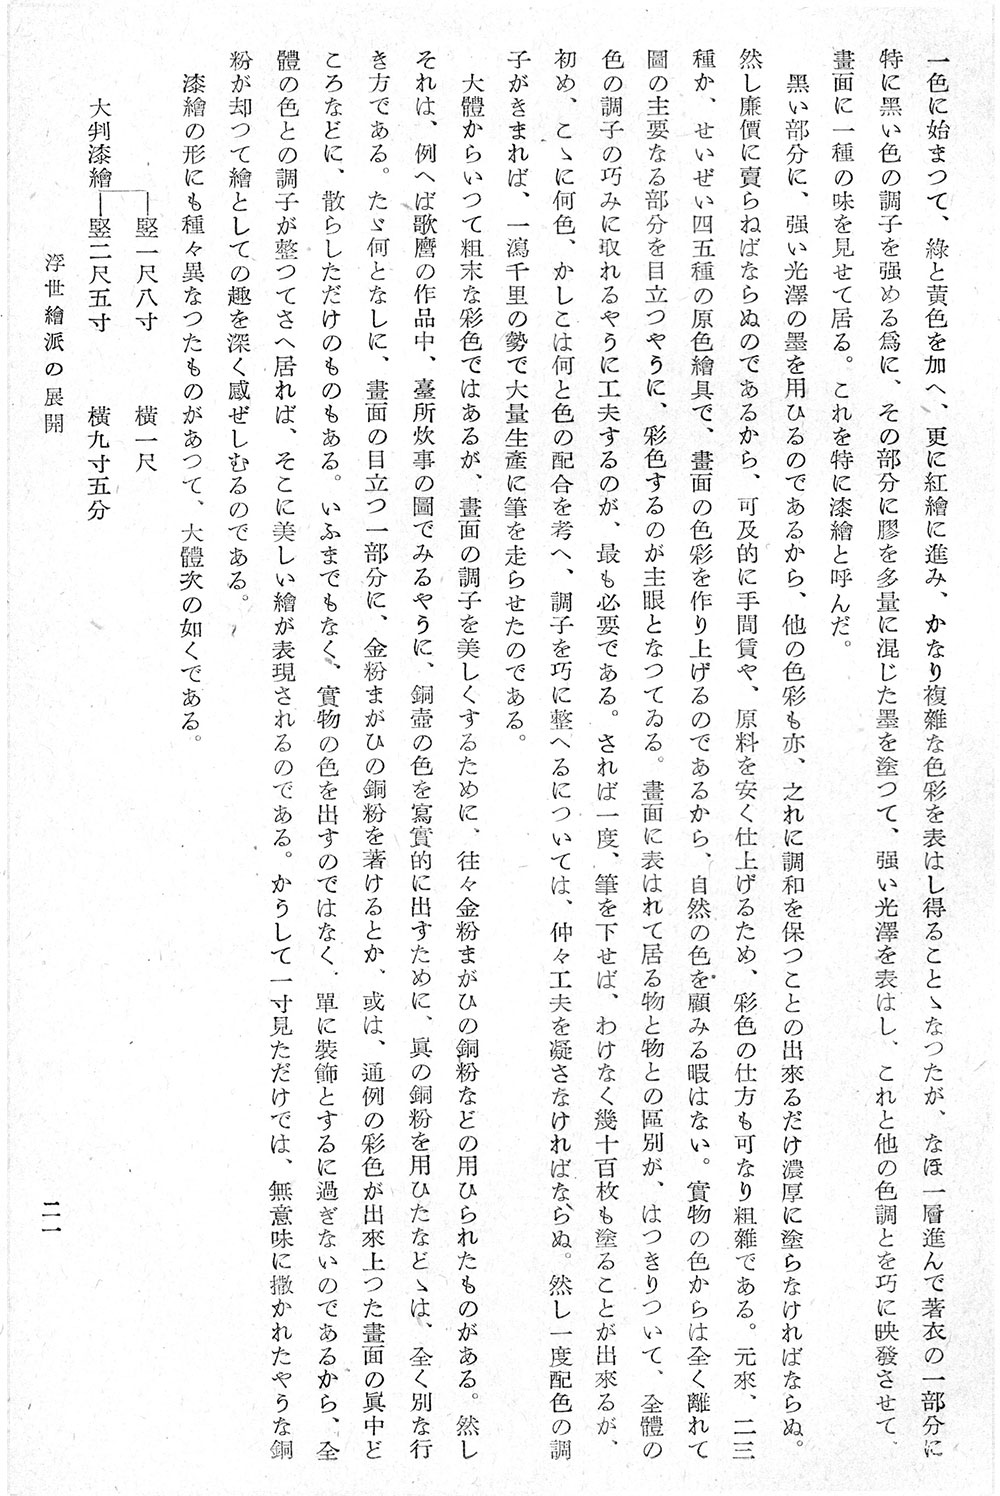 一色に始まつて、綠と黄色を加へ、更に紅繪に進み、かなり複雜な色彩を表はし得ることゝなつたが、なほ一層進んで著衣の一部分に
特に黑い色の調子を强める爲に、その部分に膠を多量に混じた墨を塗つて、强い光澤を表はし、これと他の色調とを巧に映發させて、
畫面に一種の味を見せて居る。これを特に漆繪と呼んだ。
黑い部分に、强い光澤の墨を用ひるのであるから、他の色彩も亦、之れに調和を保つことの出來るだけ濃厚に塗らなければならぬ。
然し廉價に賣らねばならぬのであるから、可及的に手間賃や、原料を安く仕上げるため、彩色の仕方も可なり粗雜である。元來、二三
種か、せいぜい四五種の原色繪具で、畫面の色彩を作り上げるのであるから、自然の色を顧みる暇はない。實物の色からは全く離れて
圖の主要なる部分を目立つやうに、彩色するのが主眼となつてゐる。畫面に表はれて居る物と物との區別が、はつきりついて、全體の
色の調子の巧みに取れるやうに工夫するのが、最も必要である。されば一度、筆を下せば、わけなく幾十百枚も塗ることが出來るが、
初め、こゝに何色、かしこは何と色の配合を考へ、調子を巧に整へるについては、仲々工夫を凝さなければならぬ。然し一度配色の調
子がきまれば、一瀉千里の勢で大量生產に筆を走らせたのである。
大體からいつて粗末な彩色ではあるが、畫面の調子を美しくするために、往々金粉まがひの銅粉などの用ひられたものがある。然し
それは、例へば歌麿の作品中、臺所炊事の圖でみるやうに、銅壺の色を寫實的に出すために、眞の銅粉を用ひたなどゝは、全く別な行
き方である。たゞ何となしに、畫面の目立つ一部分に、金粉まがひの銅粉を著けるとか、或は、通例の彩色が出來上つた畫面の眞中ど
ころなどに、散らしただけのものもある。いふまでもなく、實物の色を出すのではなく、單に裝飾とするに過ぎないのであるから、全
體の色との調子が整つてさへ居れば、そこに美しい繪が表現されるのである。かうして一寸見ただけでは、無意味に撒かれたやうな銅
粉が却つて繪としての趣を深く感ぜしむるのである。
漆繪の形にも種々異なつたものがあつて、大體次の如くである。
竪一尺八寸　橫一尺
大判漆繪　竪二尺五寸　橫九寸五分
浮世繪派の展開　二一